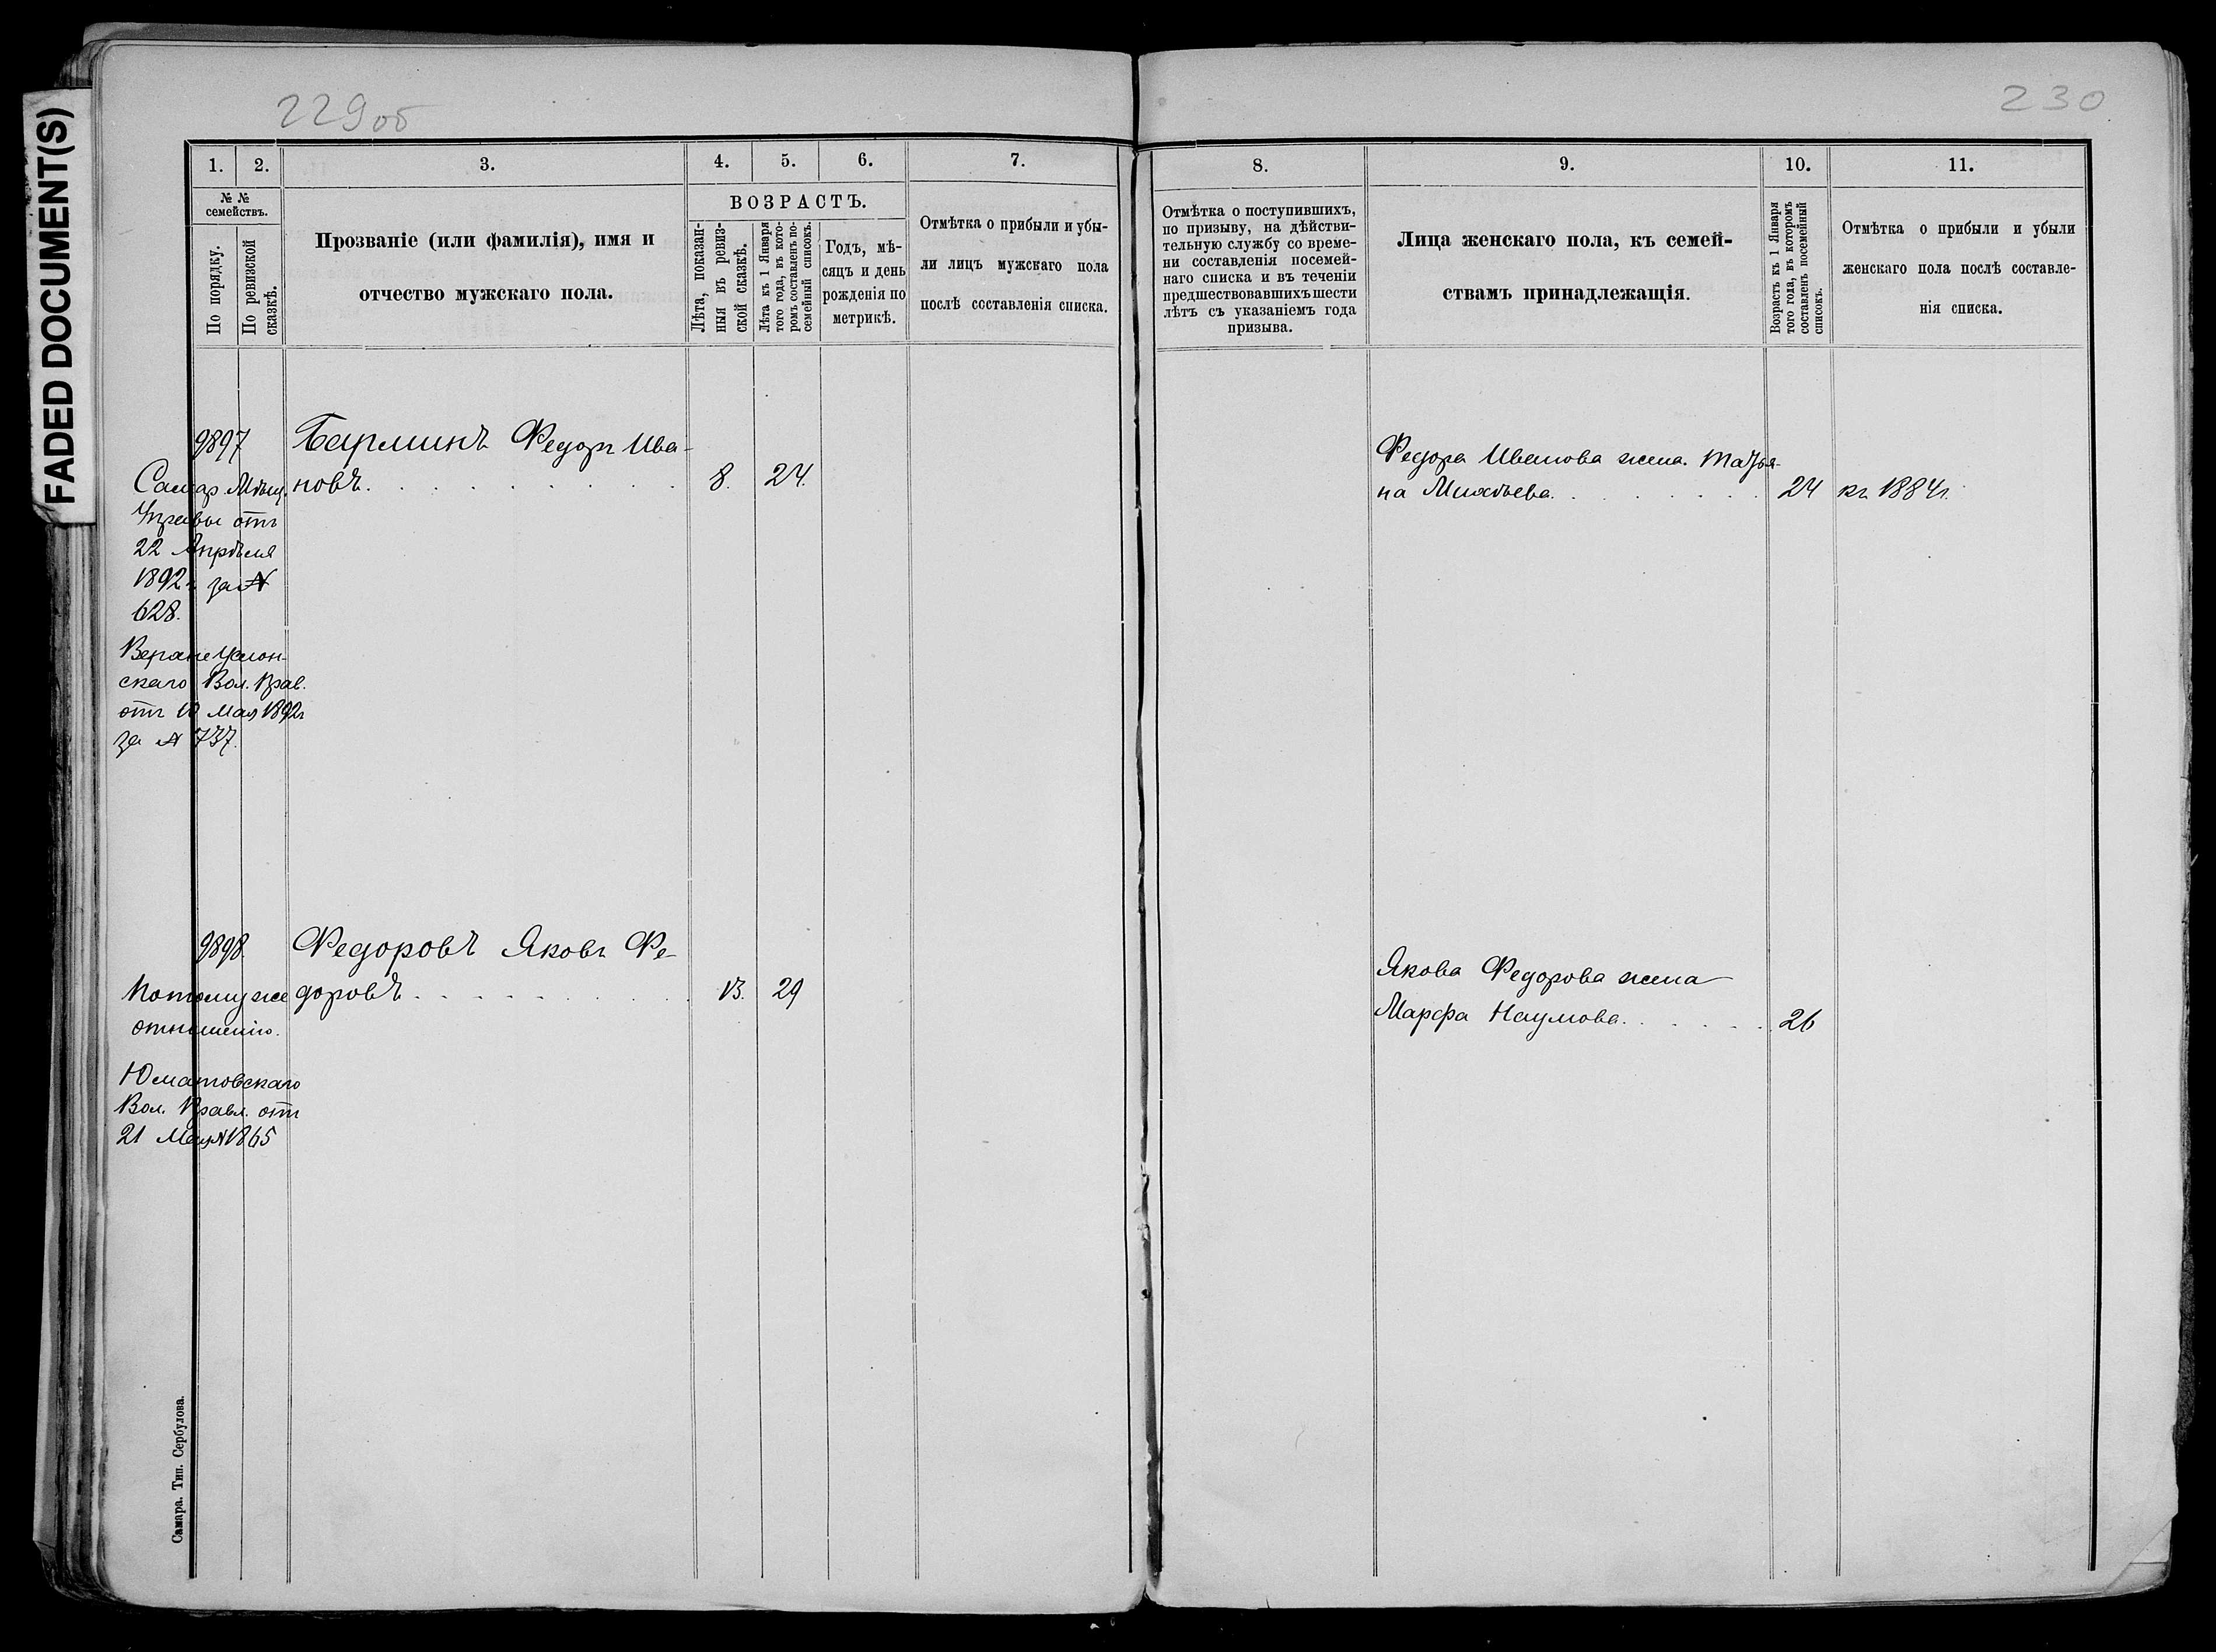 FADED DOCUMENT(S)
229об
230
1.
2.
3.
4.
5.
6.
7.
8.
9.
10.
11.
№ №
семействъ.
По порядку.
По ревизской
сказкѣ.
Прозваніе (или фамилія), имя и
отчество мужскаго пола.
ВОЗРАСТЪ.
Лѣта, показан-
ныя въ ревиз-
ской сказкѣ.
Лѣта къ 1 Января
того года, въ кото-
ромъ составленъ по-
семейный списокъ.
Годъ, мѣ-
сяцъ и день
рожденія по
метрикѣ.
Отмѣтка о прибыли и убы-
ли лицъ мужскаго пола
послѣ составленія списка.
Отмѣтка о поступившихъ,
по призыву, на дѣйстви-
тельную службу со време-
ни составленія посемей-
наго списка и въ теченіи
предшествовавшихъ шести
лѣтъ съ указаніемъ года
призыва.
Лица женскаго пола, къ семей-
ствамъ принадлежащія.
Возрастъ къ 1 Января
того года, въ которомъ
составленъ посемейный
списокъ.
Отмѣтка о прибыли и убыли
женскаго пола послѣ составле-
нія списка.
9897 Барминъ Федоръ Ива-
новъ. 8. 24.
Самар. Мѣщ.
Управы отъ
22 Апрѣля
1892 г за №
628.
Верхне Услон-
скаго Вол. Прав.
отъ 10 Мая 1892г
за № 737.
Федора Иванова жена. Татья-
на 24 къ 1884г.
9898. Федоровъ Яковъ Фе-
доровъ 13. 29
Потому же
отношенію.
Юматовскаго
Вол. Правл. отъ
21 Мая № 1865
Якова Федорова жена
Марфа Наумова. 26
Самара. Тип. Сербулова.